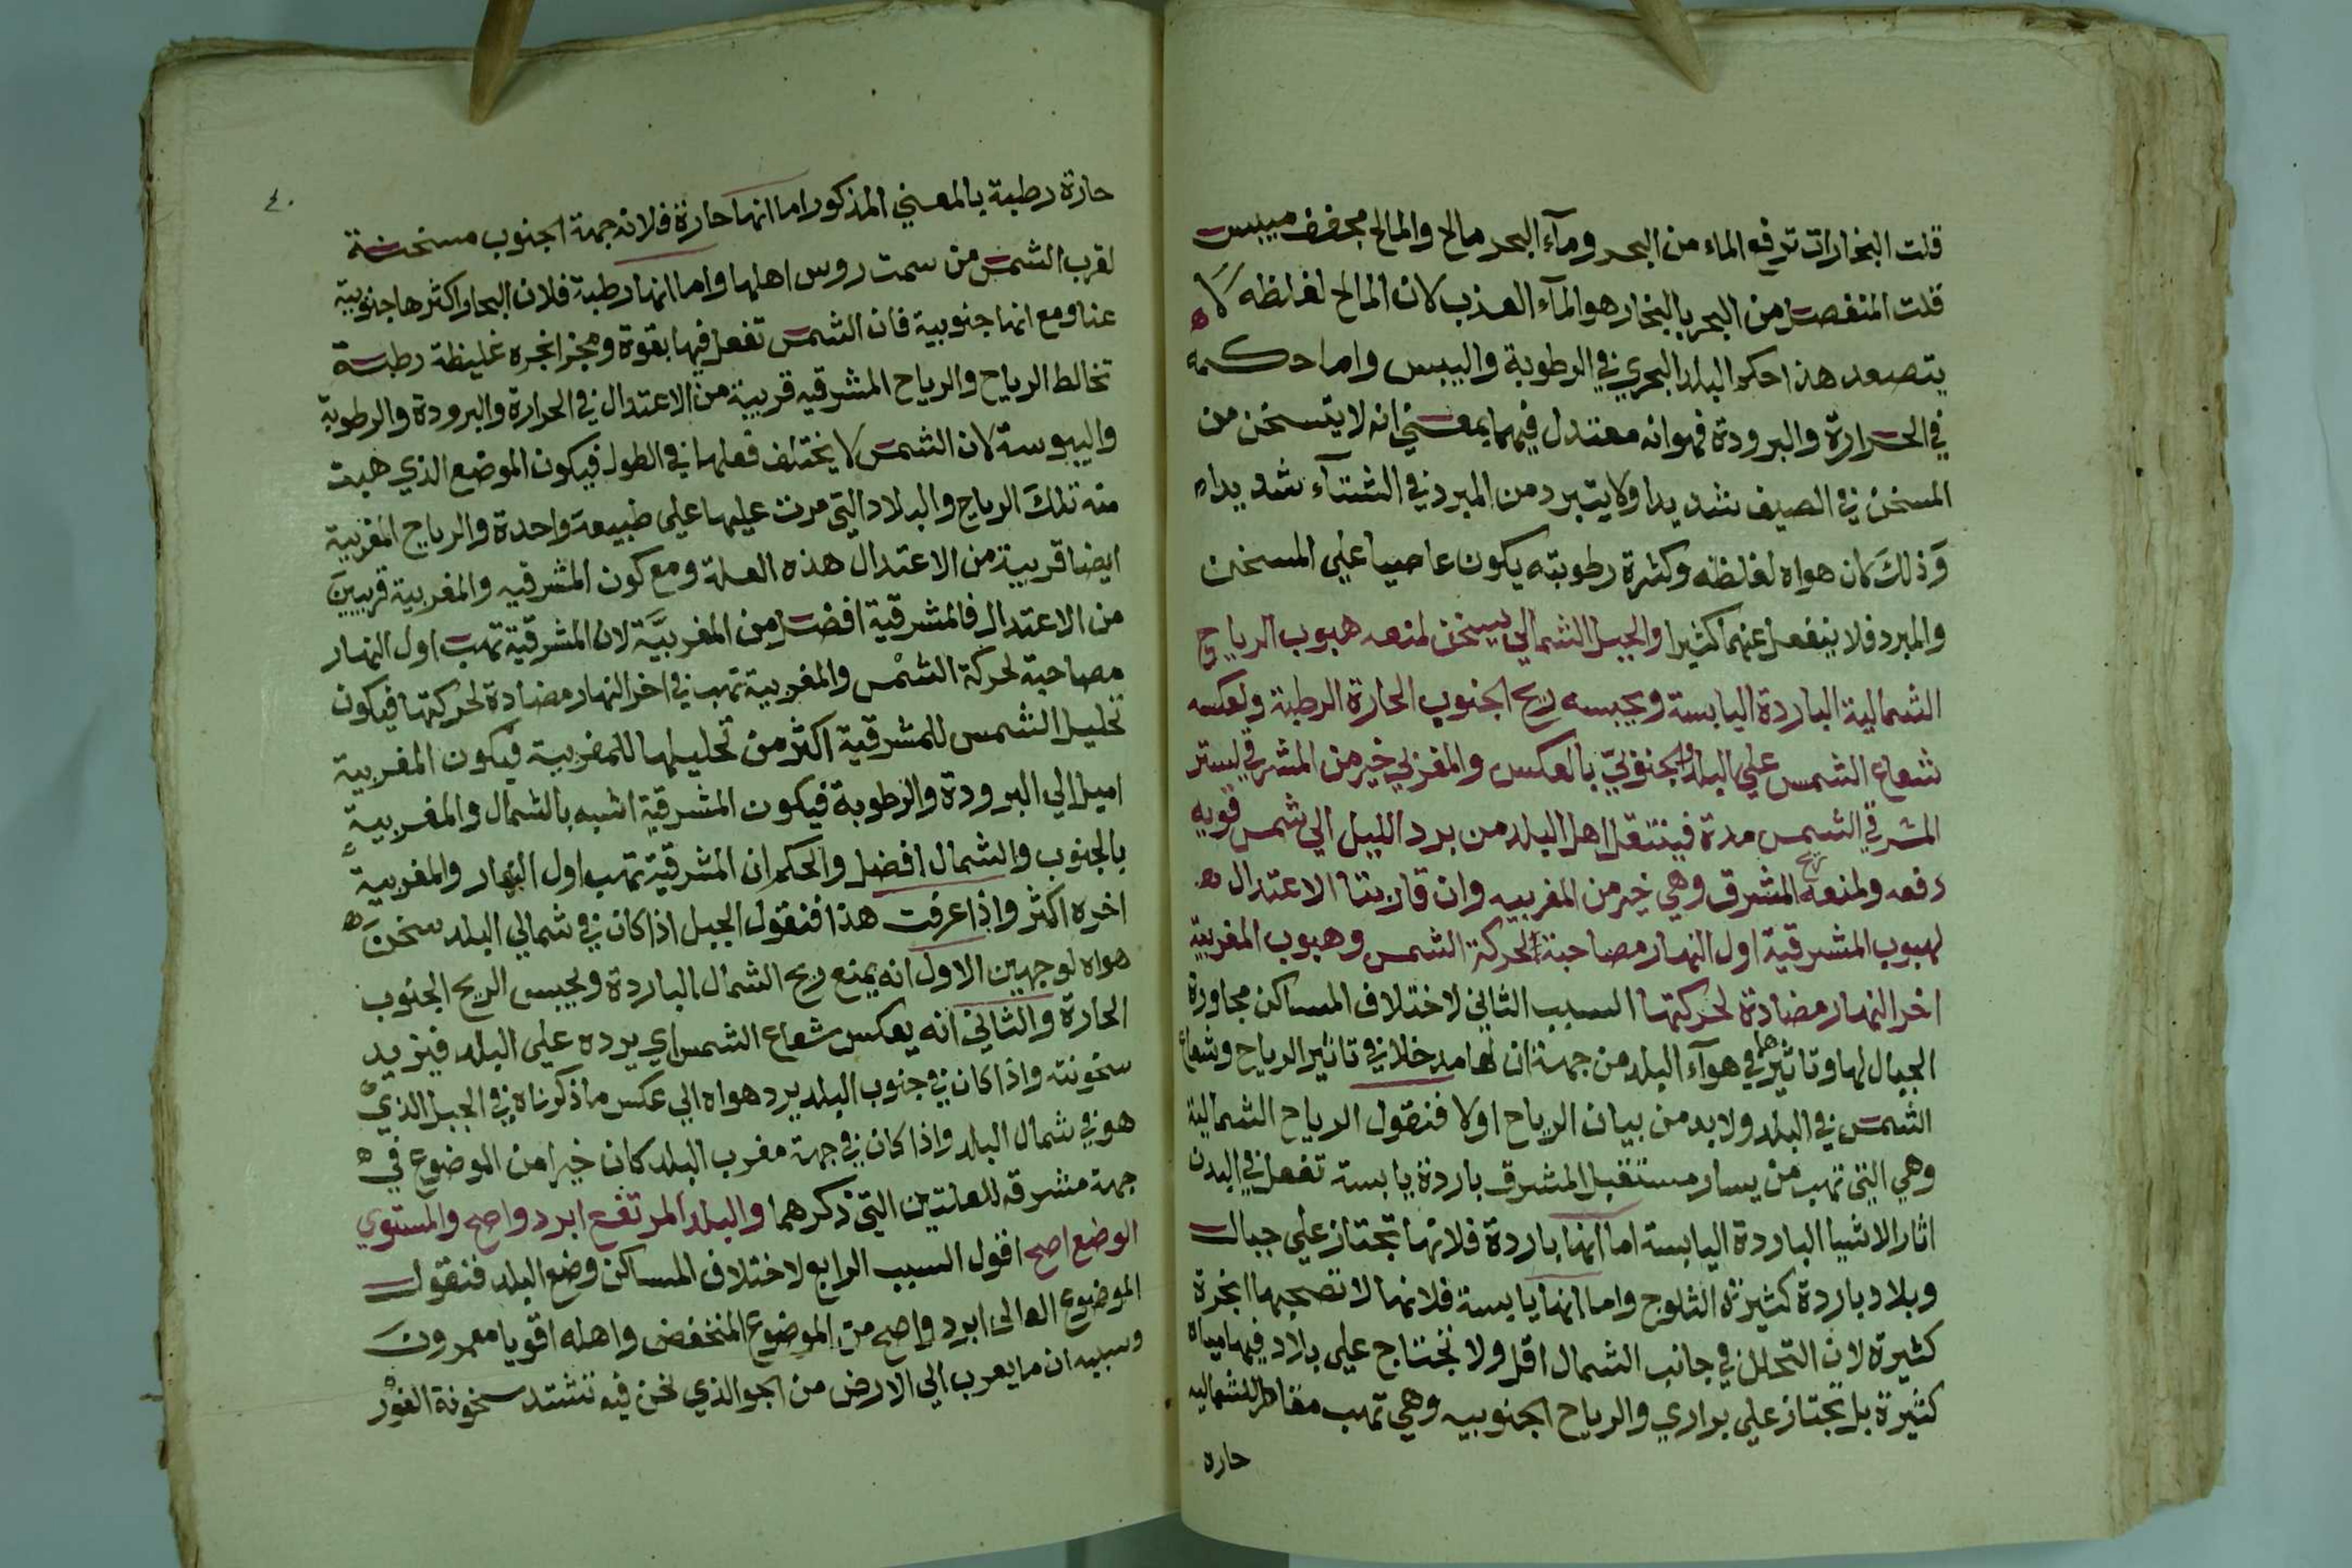 قلت البخارات ترفع الماء من البحر ومآء البحر مالح والمالح مجفف ميبس
قلت المنفصل من البحر بالبخار هو المآء العذب لان المالح لغلظه لا
يتصعد هذا حكم البلد البحري في الرطوبة واليبس واما حكمه
في الحرارة والبرودة فهو انه معتدل فيهما بمعني انه لا يتسخن من
المسخن في الصيف شديدا ولا يتبرد من المبرد في الشتآء شديدا
وذلك لان هواه لغلظه وكثرة رطوبته يكون عاصيا علي المسخن
والمبرد فلا ينفعل عنهما كثيرا والجبل الشمالي يسخن لمنعه هبوب الرياح
الشمالية الباردة اليابسة ويحبسه ريح الجنوب الحارة الرطبة ولعكسه
شعاع الشمس علي البلد والجنوبي بالعكس والمغربي خير من المشرقي ليستر
المشرقي الشمس مدة فينتقل اهل البلد من برد الليل الي شمس قويه
دفعه ولمنعه ريح المشرق وهي خير من المغربيه وان قاربتا الاعتدال
لهبوب المشرقية اول النهار مصاحبة لحركة الشمس وهبوب المغربية
اخر النهار مضادة لحركتها السبب الثاني لاختلاف المساكن مجاورة
الجبال لها وتاثيرها في هوآء البلد من جهة ان لها مدخلا في تاثير الرياح وشعاع
الشمس في البلد ولا بد من بيان الرياح اولا فنقول الرياح الشمالية
وهي التي تهب من يسار مستقبل المشرق باردة يابسة تفعل في البدن
اثار الاشيا الباردة اليابسة اما انها باردة فلانها تجتاز علي جبال
وبلاد باردة كثيرة الثلوج واما انها يابسة فلانها لا تصحبها ابخرة
كثيرة لان التحلل في جانب الشمال اقل ولا تجتاج علي بلاد فيها مياه
كثيرة بل تجتاز علي براري والرياح الجنوبيه وهي تهب مقاطر للشماليه
حاره
٤٠
حارة رطبة بالمعني المذكور اما انها حارة فلان جهة الجنوب مسخنة
لقرب الشمس من سمت روس اهلها واما انها رطبة فلان البحار اكثرها جنوبية
عنا ومع انها جنوبية فان الشمس تفعل فيها بقوة وبخر ابخره غليظة رطبة
تخالط الرياح والرياح المشرقيه قريبة من الاعتدال في الحرارة والبرودة والرطوبة
واليبوسة لان الشمس لا يختلف فعلها في الطول فيكون الموضع الذي هبت
منه تلك الرياح والبلاد التي مرت عليها علي طبيعة واحدة والرياح المغربية
ايضا قريبة من الاعتدال هذه العلة ومع كون المشرقيه والمغربية قريبين
من الاعتدال فالمشرقية افضل من المغربية لان المشرقية تهب اول النهار
مصاحبة لحركة الشمس والمغربية تهب في اخر النهار مضادة لحركتها فيكون
تحليل الشمس للمشرقية اكثر من تحليلها للمغربية فيكون المغربية
اميل الي البرودة والرطوبة فيكون المشرقية اشبه بالشمال والمغربية
بالجنوب والشمال افضل والحكم ان المشرقية تهب اول النهار والمغربية
اخره اكثر واذا عرفت هذا فنقول الجبل اذا كان في شمالي البلد سخن
هواه لوجهين الاول انه يمنع ريح الشمال الباردة ويحبس الريح الجنوب
الحارة والثاني انه يعكس شعاع الشمس اي يرده علي البلد فيزيد
سخونته واذا كان في جنوب البلد يرد هواه الي عكس ما ذكرناه في الجبل الذي
هو في شمال البلد واذا كان في جهة مغرب البلد كان خيرا من الموضوع في
جهة مشرقه للعلتين التي ذكرهما والبلد المرتفع ابرد واصح والمستوي
الوضع اصح اقول السبب الرابع لاختلاف المساكن وضع البلد فنقول
الموضوع العالي ابرد واصح من الموضوع المنخفض واهله اقويا معمرون
وسببه ان ما يعرب الي الارض من الجو الذي نحن فيه تشتد سخونة الغور